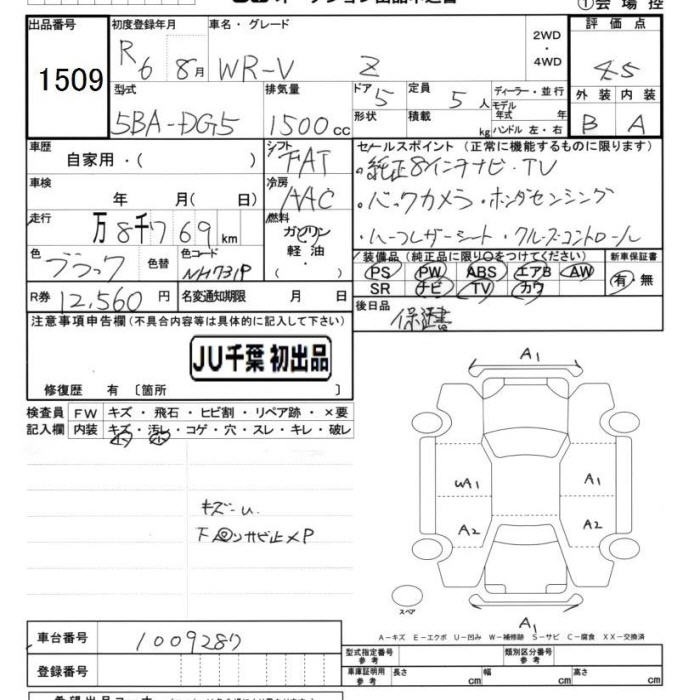 ①会場控
出品番号 初度登録年月 車名・グレード 2WD・4WD 評価点
1509 R6 8月 WR-V Z 4.5
型式 排気量 ドア 5 定員 5人 ディーラー・並行 外装 内装
5BA-DG5 1500cc 形状 積載 kg モデル年式 年 ハンドル 左・右 B A
車歴 自家用・( ) シフト FAT セールスポイント (正常に機能するものに限ります)
・純正8インチナビ・TV
車検 年 月( 日) 冷房 AAC ・バックカメラ・ホンダセンシング
走行 万8千769km 燃料 ガソリン 軽油・( ) ・ハーフレザーシート・クルーズコントロール
色 ブラック 色替 色コード NH731P 装備品 (純正品に限り〇をつけてください) 新車保証書
PS PW ABS エアB AW 有・無
SR ナビ TV カワ
R券 12,560円 名変通知期限 月 日 後日品 保証書
注意事項申告欄(不具合内容等は具体的に記入して下さい)
JU千葉 初出品
修復歴 有 〔箇所 〕
検査員記入欄 FW キズ・飛石・ヒビ割・リペア跡・×要
内装 キズ・汚レ・コゲ・穴・スレ・キレ・破レ
キズ
A1
WA1 A1
A2 A2
スペア
A1
A-キズ E-エクボ U-凹み W-補修跡 S-サビ C-腐食 XX-交換済
車台番号 1009287
型式指定番号 参考 類別区分番号 参考
登録番号 車庫証明用 参考 長さ cm 幅 cm 高さ cm